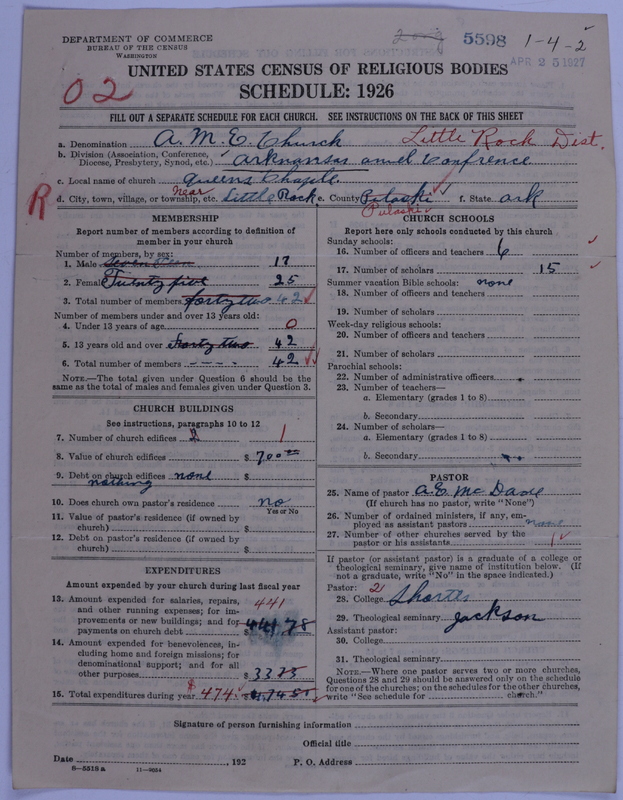 DEPARTMENT OF COMMERCE
BUREAU OF THE CENSUS
WASHINGTON
5598 1-4-2
APR 25 1927
UNITED STATES CENSUS OF RELIGIOUS BODIES
SCHEDULE: 1926
02
FILL OUT A SEPARATE SCHEDULE FOR EACH CHURCH. SEE INSTRUCTIONS ON THE BACK OF THIS SHEET
a. Denomination A. M. E. Church Little Rock Dist.
b. Division (Association, Conference, Diocese, Presbytery, Synod, etc.) Arknansas Confrence
c. Local name of church Queens
R
d. City, town, village, or township, etc. Near Little Rock e. County Pulaski f. State Ark
MEMBERSHIP
Report number of members according to definition of
member in your church
Number of members, by sex:
1. Male Seventeen 17
2. Female Twenty five 25
3. Total number of members forty two 42
Number of members under and over 13 years old:
4. Under 13 years of age 0
5. 13 years old and over Forty two 42
6. Total number of members 42
NOTE.—The total given under Question 6 should be the
same as the total of males and females given under Question 3.
CHURCH BUILDINGS
See instructions, paragraphs 10 to 12
7. Number of church edifices 1
8. Value of church edifices $ 700.00
9. Debt on church edifices none $
nothing
10. Does church own pastor's residence no
Yes or No
11. Value of pastor's residence (if owned by
church) $
12. Debt on pastor's residence (if owned by
church) $
EXPENDITURES
Amount expended by your church during last fiscal year
13. Amount expended for salaries, repairs, 441
and other running expenses; for im-
provements or new buildings; and for
payments on church debt $ 441 78
14. Amount expended for benevolences, in-
cluding home and foreign missions; for
denominational support; and for all
other purposes $ 33
15. Total expenditures during year $ 474
CHURCH SCHOOLS
Report here only schools conducted by this church
Sunday schools:
16. Number of officers and teachers 6
17. Number of scholars 15
Summer vacation Bible schools: none
18. Number of officers and teachers
19. Number of scholars
Week-day religious schools:
20. Number of officers and teachers
21. Number of scholars
Parochial schools:
22. Number of administrative officers
23. Number of teachers—
a. Elementary (grades 1 to 8)
b. Secondary
24. Number of scholars—
a. Elementary (grades 1 to 8)
b. Secondary
PASTOR
25. Name of pastor A. E. Mc
(If church has no pastor, write "None")
26. Number of ordained ministers, if any, em-
ployed as assistant pastors none
27. Number of other churches served by the
pastor or his assistants 1
If pastor (or assistant pastor) is a graduate of a college or
theological seminary, give name of institution below. (If
not a graduate, write "No" in the space indicated.)
Pastor: 2
28. College Shorter
29. Theological seminary Jackson
Assistant pastor:
30. College
31. Theological seminary
NOTE.—Where one pastor serves two or more churches,
Questions 28 and 29 should be answered only on the schedule
for one of the churches; on the schedules for the other churches,
write "See schedule for church."
Signature of person furnishing information
Official title
Date , 192 P. O. Address
6—5518 a 11—9054